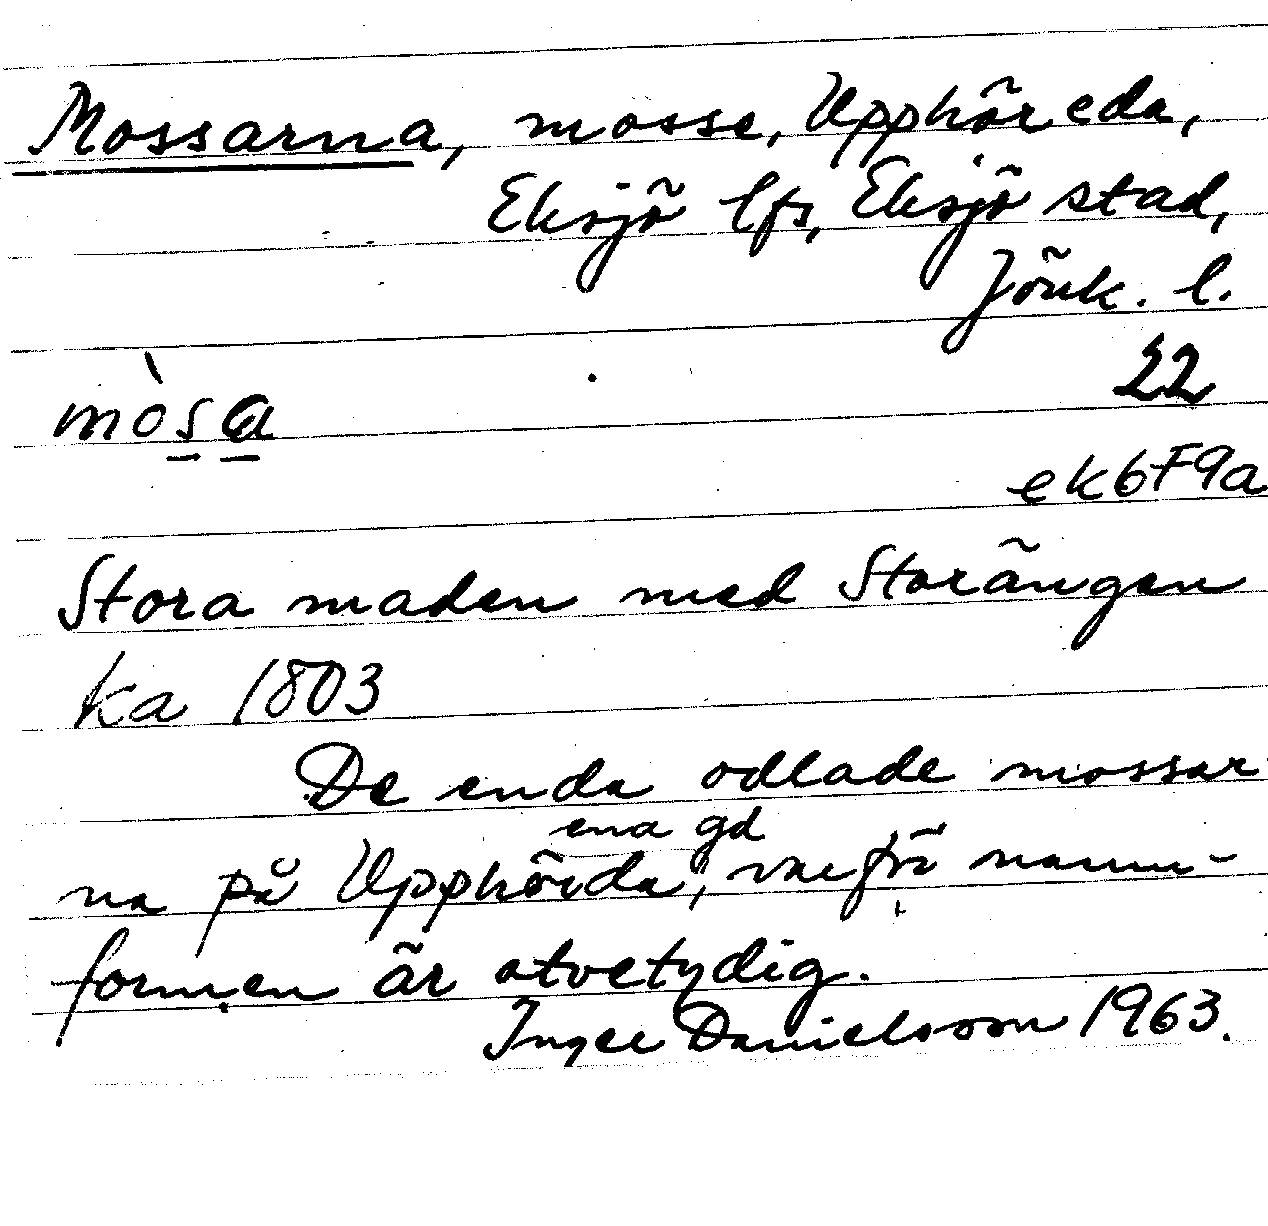 Mossarna, mosse, Upphöreda,
Eksjö lfs, Eksjö stad,
Jönk. l.
mòsa 22
ek 6F9a
Stora maden med Storängen
ka 1803
De enda odlade mossar
na på Upphörda ena gd, varför namn-
formen är otvetydig.
Inger Danielsson 1963.